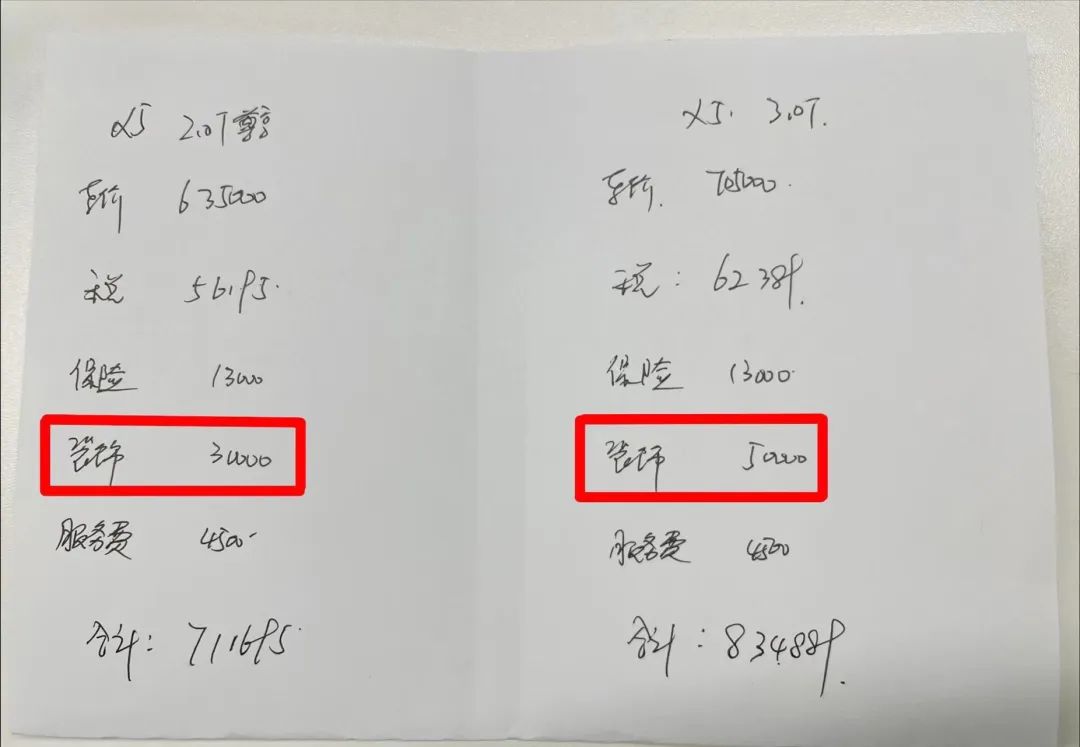 X5 2.0T 尊享
车价 635000
税 56195
保险 13000
装饰 30000
服务费 4500
合计: 711695
X5 3.0T
车价 705000
税: 62389
保险 13000
装饰 50000
服务费 4500
合计: 834889